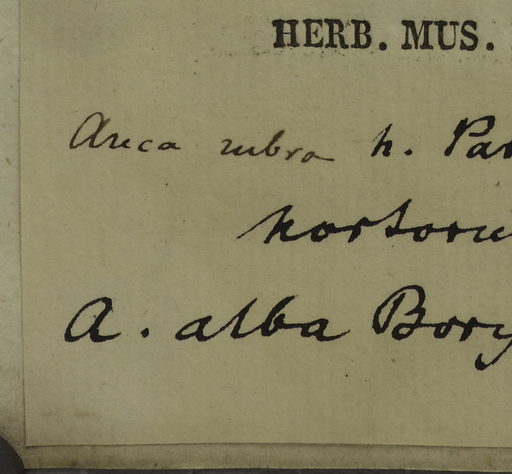 HERB. MUS.
Areca rubra h. Par
hortoru
A. alba Bory